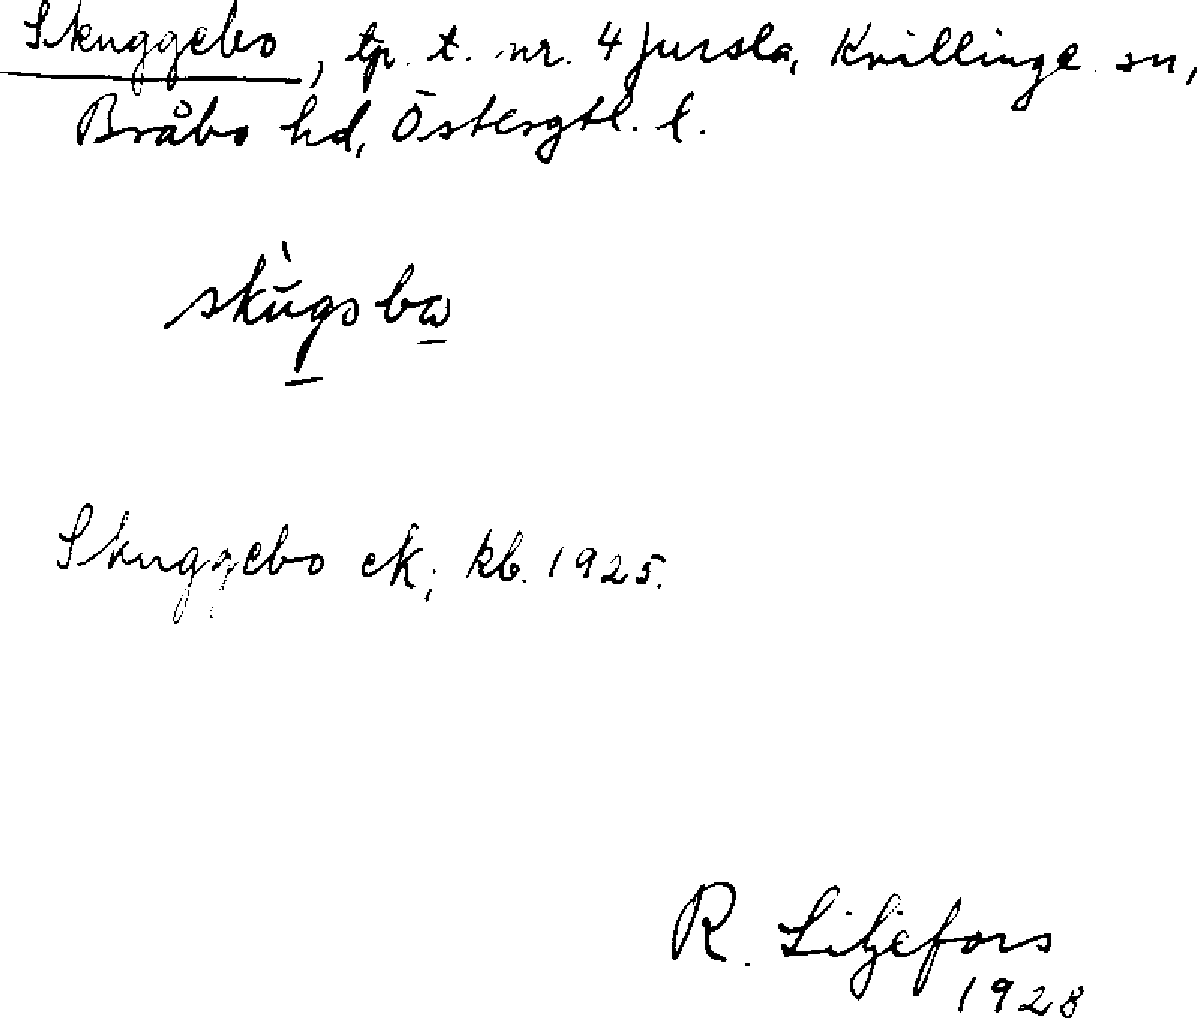 Skuggebo, tp. t. nr. 4 Jursla, Kvillinge sn,
Bråbo hd, Östergtl. l.
skùgsbω
Skuggebo ek; kb. 1925.
R. Liljefors
1928